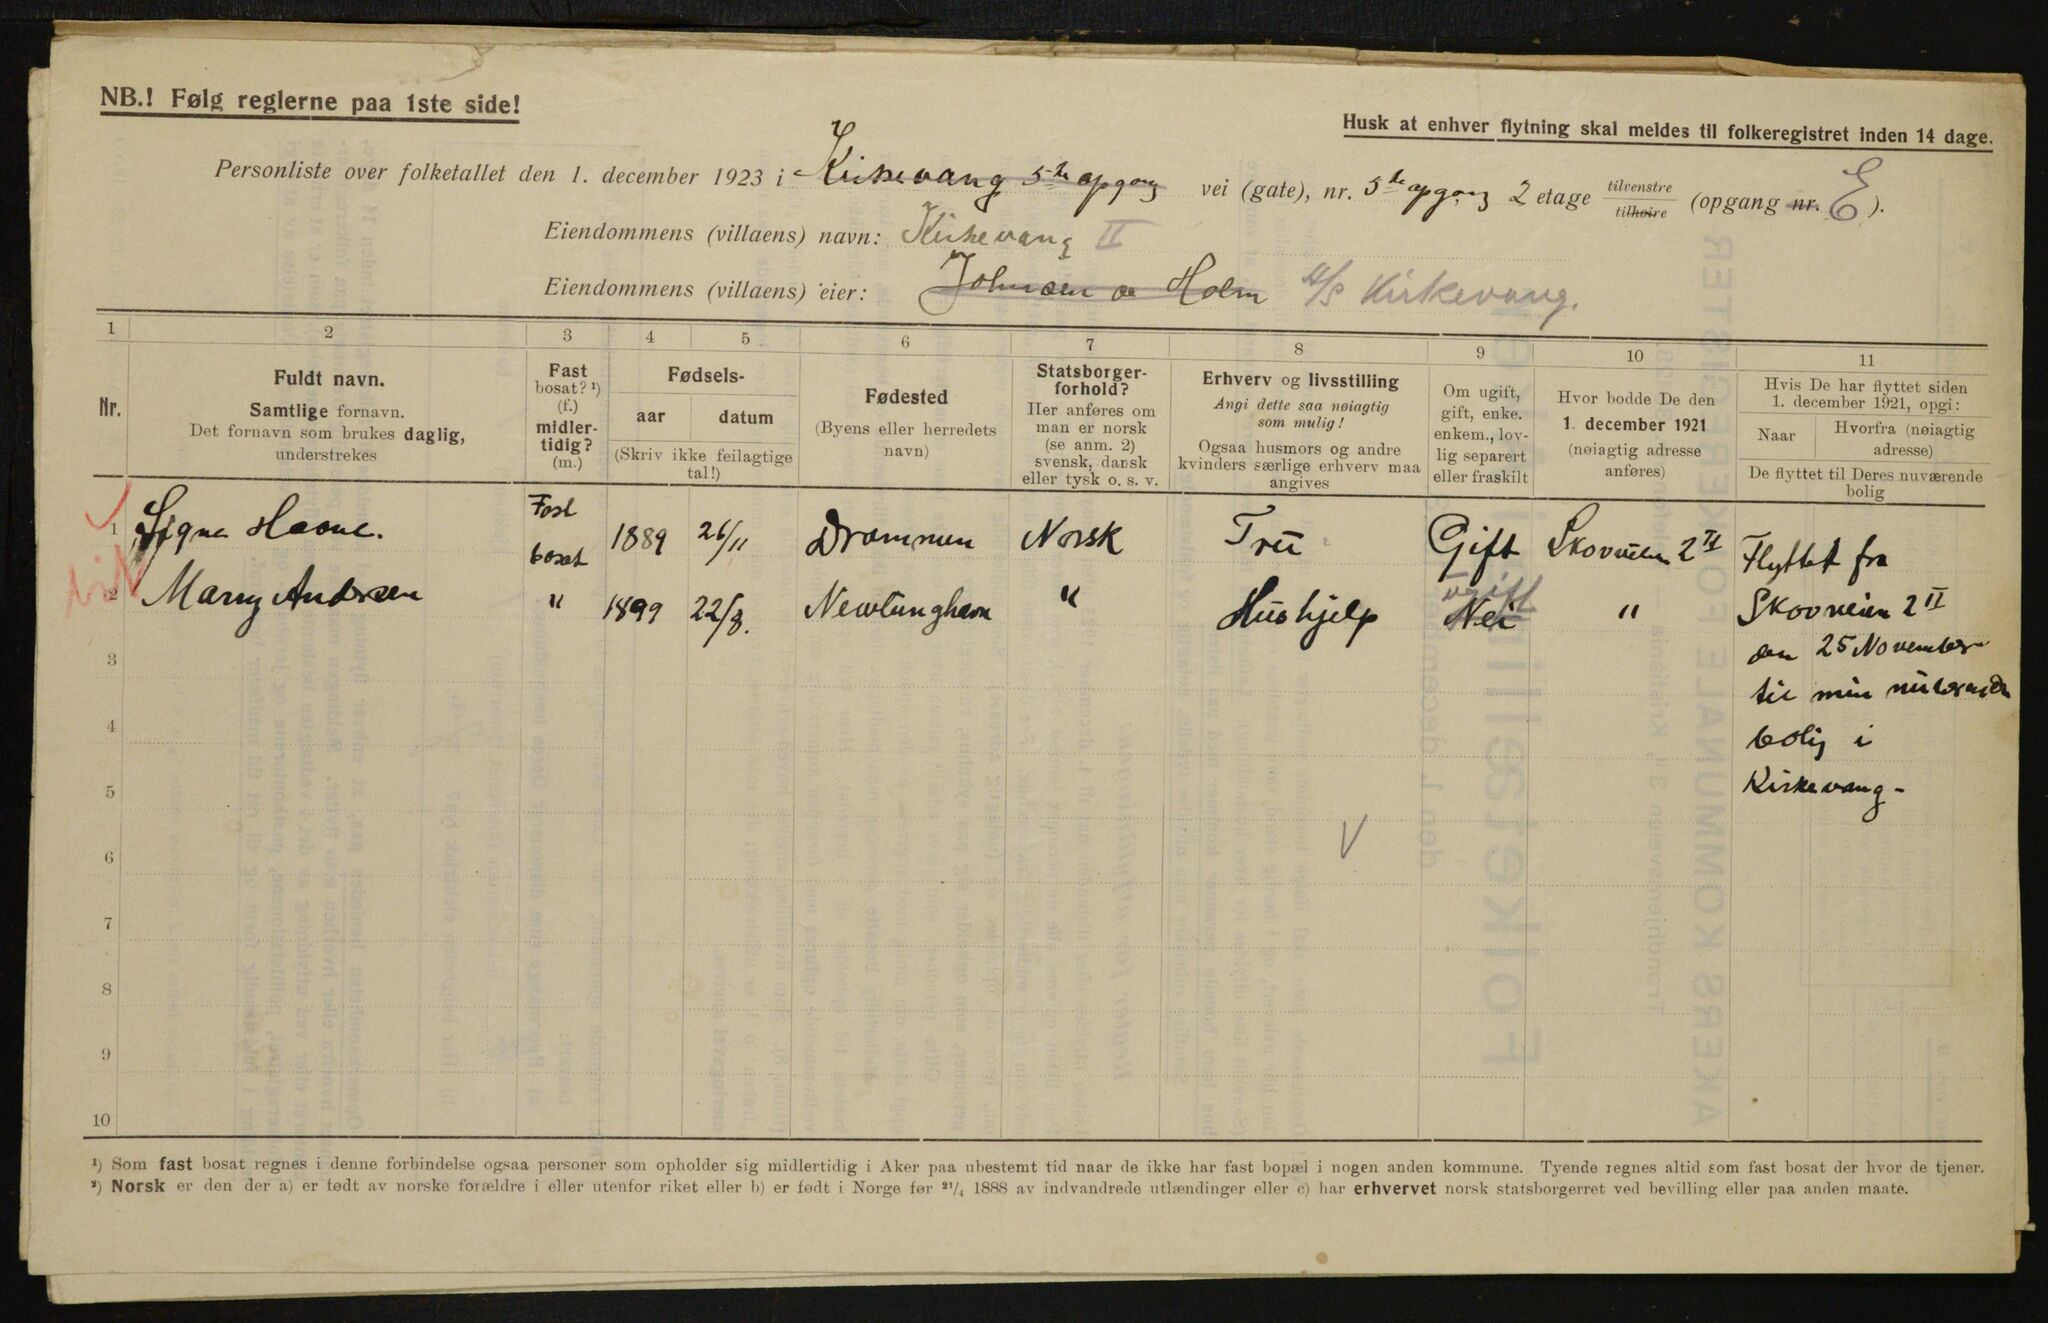 NB.! Følg reglerne paa 1ste side!
Husk at enhver flytning skal meldes til folkeregistret inden 14 dage.
Personliste over folketallet den 1. december 1923 i Kirkevang 5te opgang vei (gate), nr. 5te opgang 2 etage tilvenstre tilhøire (opgang nr. E).
Eiendommens (villaens) navn: Kirkevang II
Eiendommens (villaens) eier: Johnsen og Holm A/S Kirkevang.
1 2 3 4 5 6 7 8 9 10 11
Nr.
Fuldt navn.
Samtlige fornavn.
Det fornavn som brukes daglig,
understrekes
Fast
bosat? ¹)
(f.)
midler-
tidig?
(m.)
Fødsels-
aar datum
(Skriv ikke feilagtige
tal!)
Fødested
(Byens eller herredets
navn)
Statsborger-
forhold?
Her anføres om
man er norsk
(se anm. 2)
svensk, dansk
eller tysk o. s. v.
Erhverv og livsstilling
Angi dette saa nøiagtig
som mulig!
Ogsaa husmors og andre
kvinders særlige erhverv maa
angives
Om ugift,
gift, enke.
enkem., lov-
lig separert
eller fraskilt
Hvor bodde De den
1. december 1921
(nøiagtig adresse
anføres)
Hvis De har flyttet siden
1. december 1921, opgi:
Naar Hvorfra (nøiagtig
adresse)
De flyttet til Deres nuværende
bolig
1 Signe Fast bosat 1889 26/11 Drammen Norsk Frü Gift Skovveien 2 II Flyttet fra
2 Marny Andersen " 1899 22/8. " Hushjelp Nei ugift " Skovveien 2 II
3 den 25 November
til min nuværende
4 bolig i
5 Kirkevang -
6
7
8
9
10
¹) Som fast bosat regnes i denne forbindelse ogsaa personer som opholder sig midlertidig i Aker paa ubestemt tid naar de ikke har fast bopæl i nogen anden kommune. Tyende regnes altid som fast bosat der hvor de tjener.
²) Norsk er den der a) er født av norske forældre i eller utenfor riket eller b) er født i Norge før 21/4 1888 av indvandrede utlændinger eller c) har erhvervet norsk statsborgerret ved bevilling eller paa anden maate.